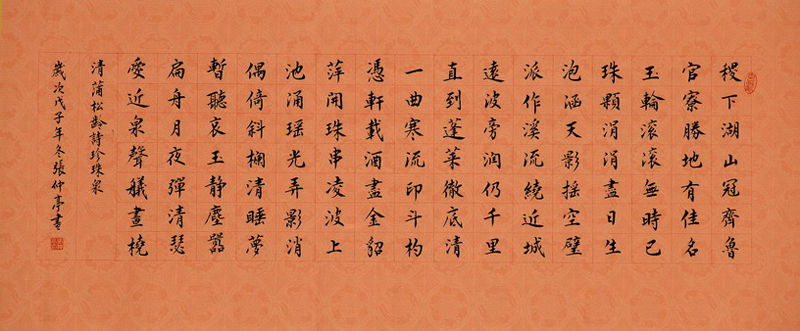 稷下湖山冠齊魯
官寮勝地有佳名
玉輪滾滾無時已
珠顆涓涓盡日生
泡涵天影摇空壁
派作溪流繞近城
遠波旁润仍千里
直到蓬萊徹底清
一曲寒流印斗杓
憑軒載酒盡金貂
萍開珠串凌波上
池涌瑶光弄影消
偶倚斜欄清睡夢
暫聽哀玉静塵囂
扁舟月夜彈清瑟
愛近泉聲艤畫橈
清蒲松龄詩珍珠泉
歲次戊子年冬張仲亭書